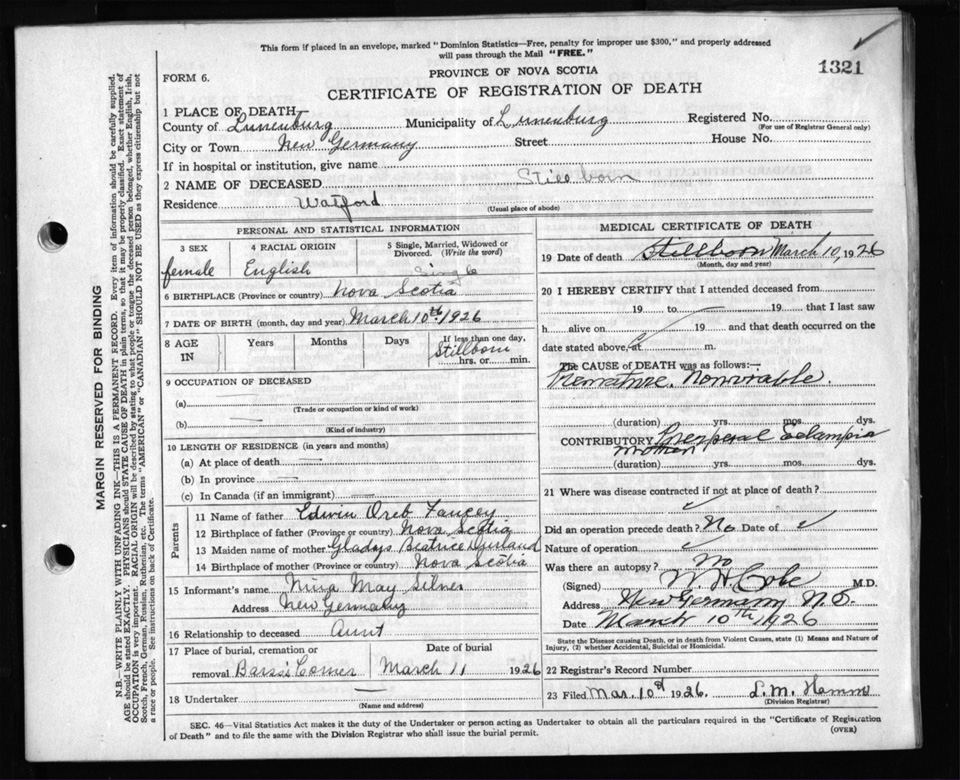 This form if placed in an envelope, marked "Dominion Statistics—Free, penalty for improper use $300," and properly addressed
will pass through the Mail "FREE."
1321
FORM 6.
PROVINCE OF NOVA SCOTIA
CERTIFICATE OF REGISTRATION OF DEATH
1 PLACE OF DEATH
County of Lunenburg Municipality of Lunenburg Registered No.
(For use of Registrar General only)
City or Town New Germany Street House No.
If in hospital or institution, give name
2 NAME OF DECEASED Still born
Residence Watford
(Usual place of abode)
PERSONAL AND STATISTICAL INFORMATION
3 SEX 4 RACIAL ORIGIN 5 Single, Married, Widowed or Divorced. (Write the word)
female English Single
6 BIRTHPLACE (Province or country) Nova Scotia
7 DATE OF BIRTH (month, day and year) March 10th 1926
8 AGE IN Years Months Days If less than one day,
Stillborn
hrs. or min.
9 OCCUPATION OF DECEASED
(a)
(Trade or occupation or kind of work)
(b)
(Kind of industry)
10 LENGTH OF RESIDENCE (in years and months)
(a) At place of death
(b) In province
(c) In Canada (if an immigrant)
Parents
11 Name of father Edwin Oreb
12 Birthplace of father (Province or country) Nova Scotia
13 Maiden name of mother Gladys Beatrice
14 Birthplace of mother (Province or country) Nova Scotia
15 Informant's name May
Address New Germany
16 Relationship to deceased Aunt
17 Place of burial, cremation or removal Date of burial
Corner March 11 1926
18 Undertaker
(Name and address)
MEDICAL CERTIFICATE OF DEATH
19 Date of death Stillborn March 10, 1926
(Month, day and year)
20 I HEREBY CERTIFY that I attended deceased from
19 to 19 that I last saw
h alive on 19 and that death occurred on
date stated above, at m.
The CAUSE of DEATH was as follows:—
Premature. Nonviable.
(duration) yrs. mos. dys.
CONTRIBUTORY Puerperal Eclampsia
mother
(duration) yrs. mos. dys.
21 Where was disease contracted if not at place of death?
Did an operation precede death? No Date of
Nature of operation
Was there an autopsy? No
(Signed) W. H. Cole M.D.
Address New Germany N.S.
Date March 10th 1926
State the Disease causing Death, or in death from Violent Causes, state (1) Means and Nature of
Injury, (2) whether Accidental, Suicidal or Homicidal.
22 Registrar's Record Number
23 Filed Mar. 10th 1926. L. M.
(Division Registrar)
SEC. 46—Vital Statistics Act makes it the duty of the Undertaker or person acting as Undertaker to obtain all the particulars required in the "Certificate of Registration
of Death" and to file the same with the Division Registrar who shall issue the burial permit.
(OVER)
MARGIN RESERVED FOR BINDING
N.B.—WRITE PLAINLY WITH UNFADING INK—THIS IS A PERMANENT RECORD. Every item of information should be carefully supplied.
AGE should be stated EXACTLY. PHYSICIANS should STATE CAUSE OF DEATH in plain terms, so that it may be properly classified. Exact statement of
OCCUPATION is very important. RACIAL ORIGIN will be described by stating to what people or tongue the deceased person belonged, whether English, Irish,
Scotch, French, German, Russian, Ruthenian, etc. The terms "AMERICAN" or "CANADIAN" SHOULD NOT BE USED as they express citizenship but not
a race or people. See instructions on back of Certificate.